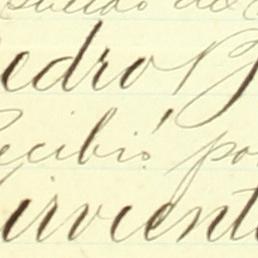 sueldo de
Pedro B
Recibió por
Sirviente